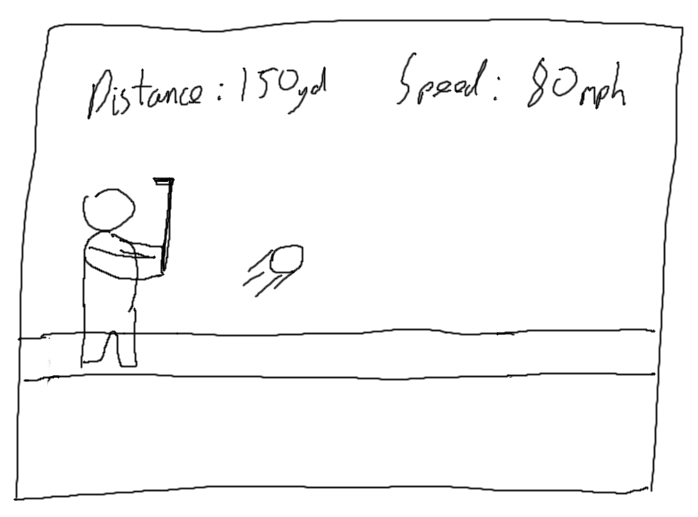 Distance: 150yd Speed: 80mph